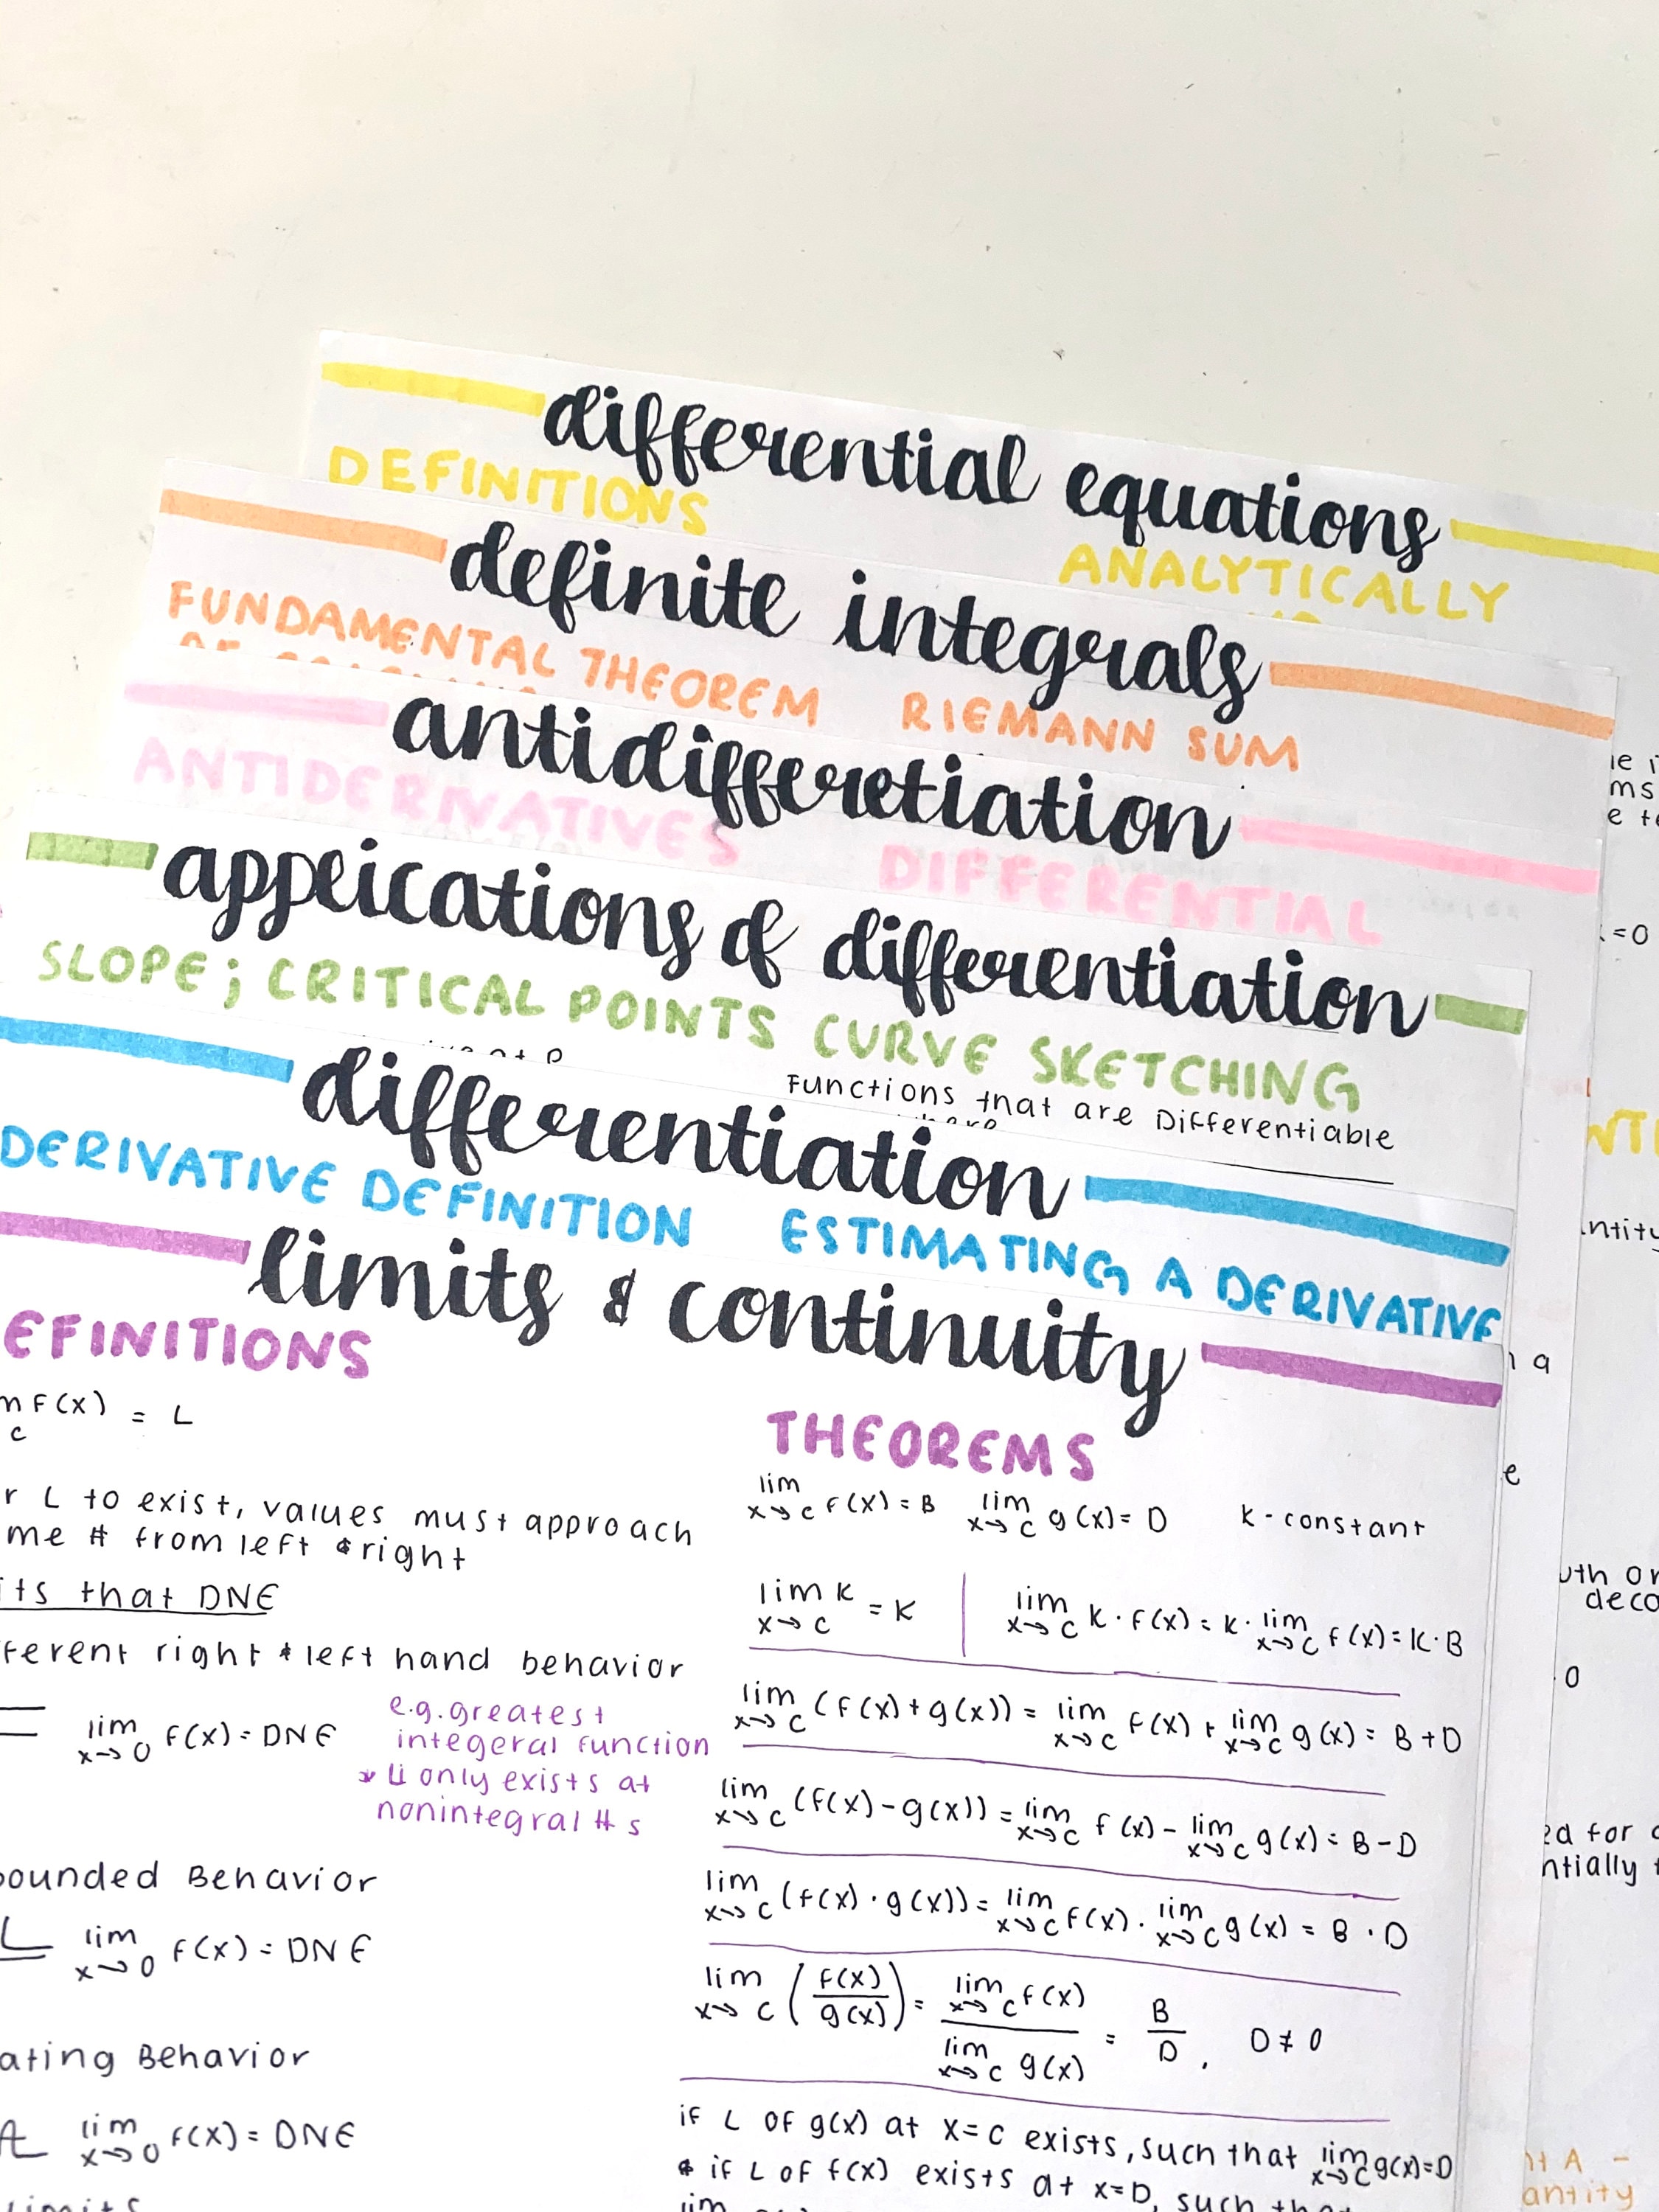 differential equations
DEFINITIONS
ANALYTICALLY
definite integrals
FUNDAMENTAL THEOREM
RIEMANN SUM
antidifferetiation
ANTIDERIVATIVES
DIFFERENTIAL
appeications of differentiation
SLOPE; CRITICAL POINTS
CURVE SKETCHING
Functions that are Differentiable
differentiation
DERIVATIVE DEFINITION
ESTIMATING A DERIVATIVE
limits & continuity
EFINITIONS
m f(x) = L
c
r L to exist, values must approach
me # from left & right
its that DNE
fferent right & left hand behavior
lim f(x) = DNE
x→0
e.g. greatest
integeral function
* L only exists at
nonintegral #s
ounded Behavior
lim f(x) = DNE
x→0
ating Behavior
lim f(x) = DNE
x→0
THEOREMS
lim f(x) = B lim g(x) = D K - constant
x→c x→c
lim K = K
x→c
lim K · f(x) = K · lim f(x) = K · B
x→c x→c
lim (f(x) + g(x)) = lim f(x) + lim g(x) = B + D
x→c x→c x→c
lim (f(x) - g(x)) = lim f(x) - lim g(x) = B - D
x→c x→c x→c
lim (f(x) · g(x)) = lim f(x) · lim g(x) = B · D
x→c x→c x→c
lim (f(x)/g(x)) = lim f(x) / lim g(x) = B/D, D ≠ 0
x→c x→c x→c
if L of g(x) at x=c exists, such that lim g(x)=D
x→c
& if L of f(x) exists at x=D, such
lim
e
ms
e
=0
ntity
a
e
uth
deco
0
ed for
ntially
A -
antity